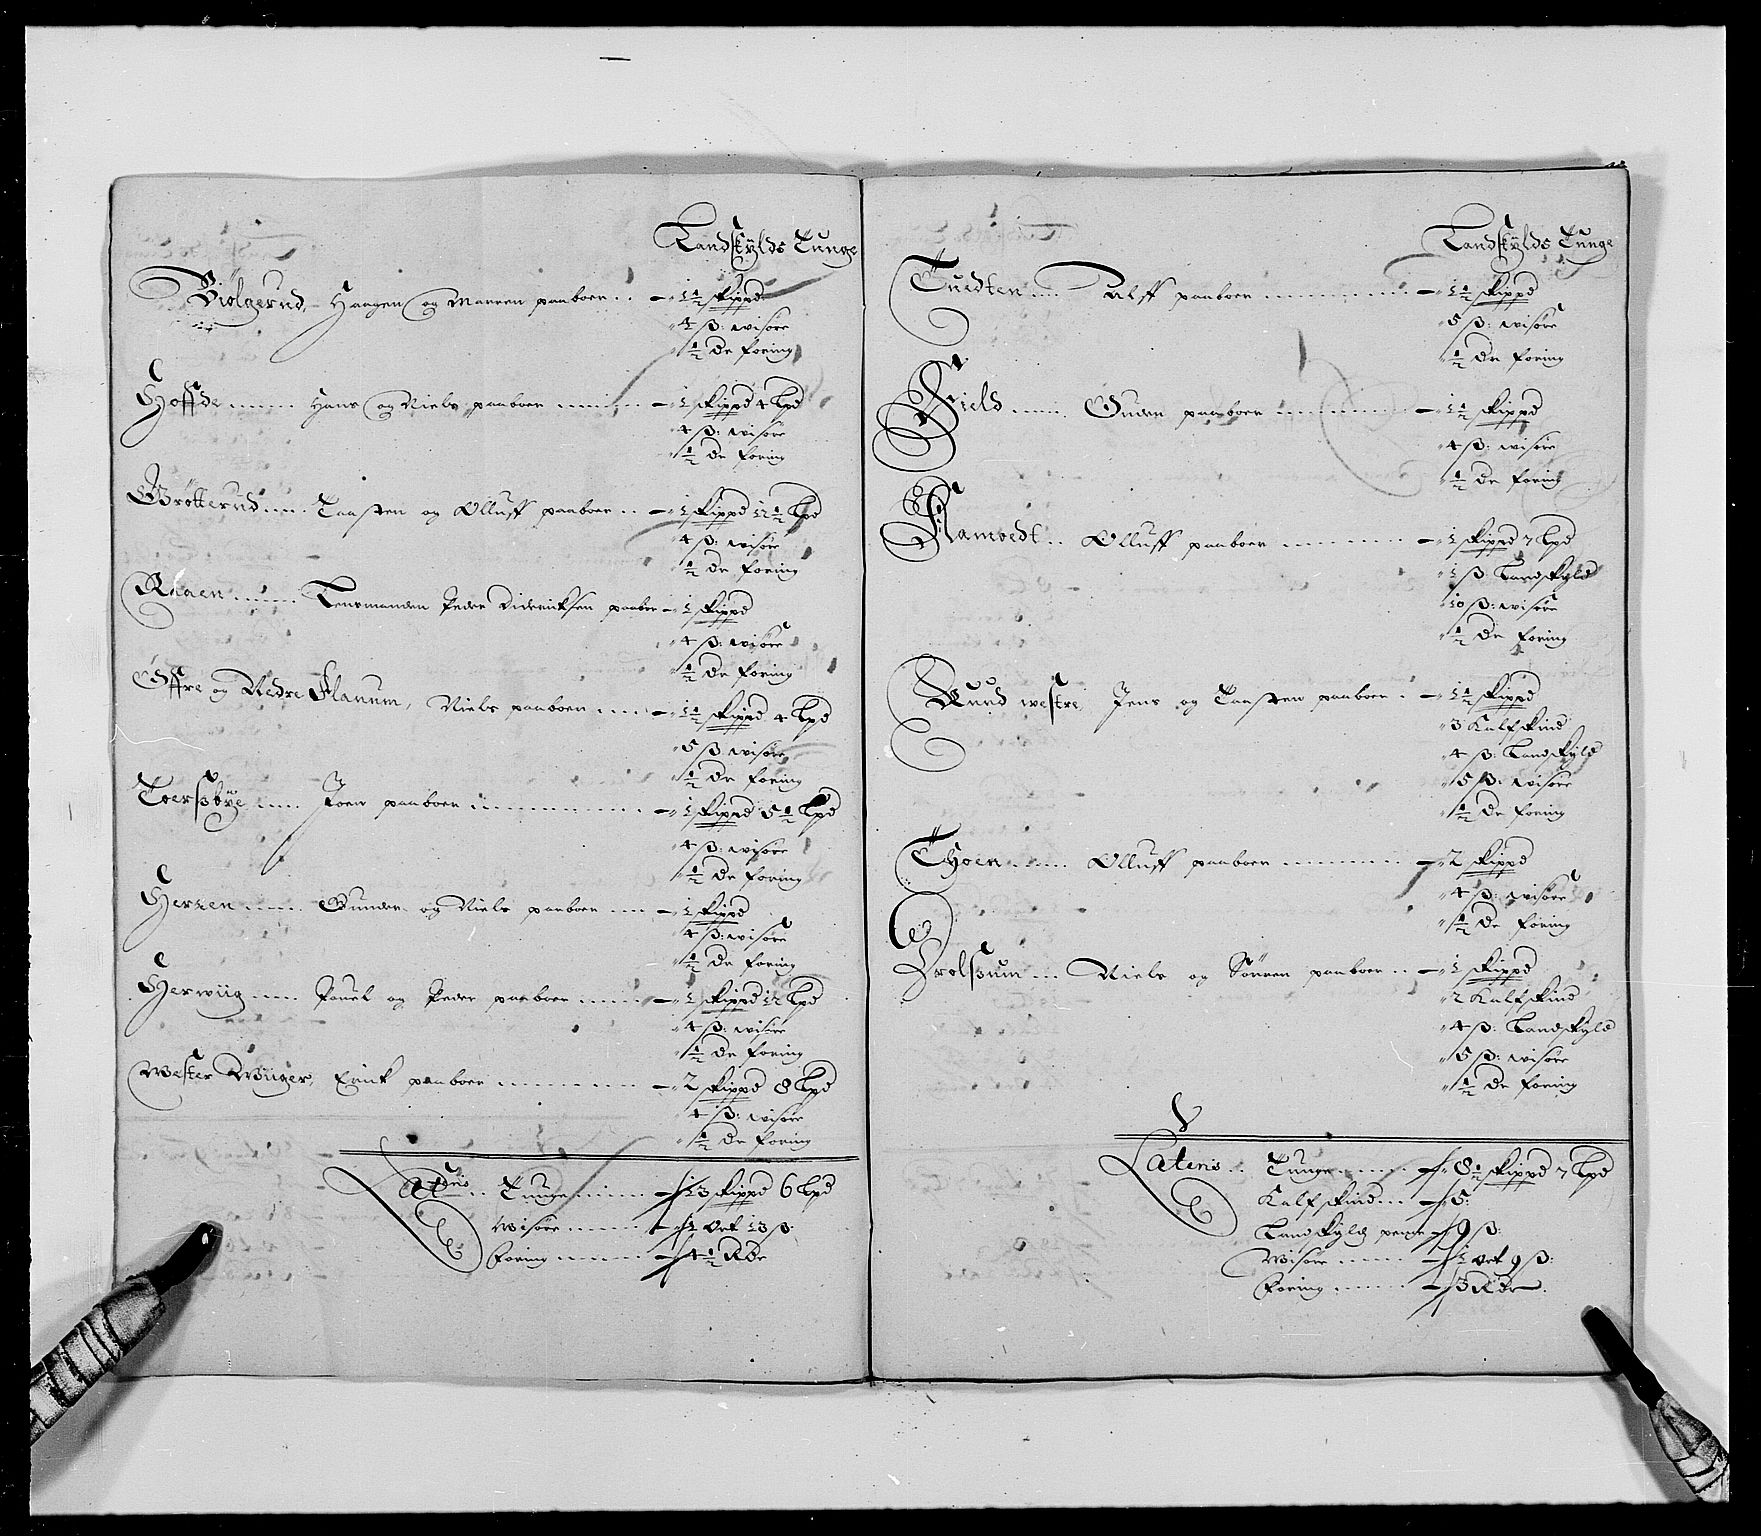 Landskylds Tunge
Biölgerud, Haagen og Marren paaboer .. — 1½ skippd
4 ß: wisöre
½ dr foring
Hoffde ...... Hans og Niels paaboer ...... — 1 skippd 4 Lpd
4 ß: wisöre
½ dr foring
Grötterud .... Taasten og Olluff paaboer .. — 1 skippd 12½ Lpd
4 ß: wisöre
½ dr foring
Aaen ...... Lensmanden Peder Diderichsen paaboer — 1 skippd
4 ß: wisöre
½ dr foring
Öffre og Nedre Flanum, Niels paaboer .... — 1½ skippd 4 Lpd
5 ß wisöre
½ dr foring
Toersbye .... Joen paaboer ............ — 1 skippd 5½ Lpd
4 ß: wisöre
½ dr foring
Hersen ..... Gunder og Niels paaboer .... — 1 skippd
4 ß: wisöre
½ dr foring
Herwiig .... Pouel og Peder paaboer ..... — 1 skippd 12 Lpd
4 ß: wisöre
½ dr foring
Wester Wüger, Erick paaboer .......... — 2 skippd 8 Lpd
4 ß: wisöre
½ dr foring
Lateris .. Tunge ...... 13 skippd 6 Lpd
Wisöre ...... 1 ort 13 ß:
Foring ...... 4½ Rdr
Landskylds Tunge
Tuedten .... Alff paaboer .......... — 1½ skippd
5 ß: wisöre
½ dr foring
Field ..... Guder paaboer .......... — 1½ skippd
4 ß: wisöre
½ dr foring
Olluff paaboer ......... — 1 skippd 7 Lpd
1 ß: Landskyld
10 ß: wisöre
½ dr foring
Ruud westre, Jens og Taasten paaboer . — 1½ skippd
3 Kalfskind
4 ß: Landskyld
5 ß: wisöre
½ dr foring
Thoen ..... Olluff paaboer ......... — 2 skippd
4 ß: wisöre
½ dr foring
Trolsrum ... Niels og Sören paaboer .. — 1 skippd
2 Kalfskind
4 ß: Landskyld
5 ß: wisöre
½ dr foring
Lateris .. Tunge ...... 8½ skippd 7 Lpd
Kalfskind ... 5:
Landskylds penge 9 ß:
Wisöre ..... 1 ort 9 ß:
Foring ...... 3 Rdr